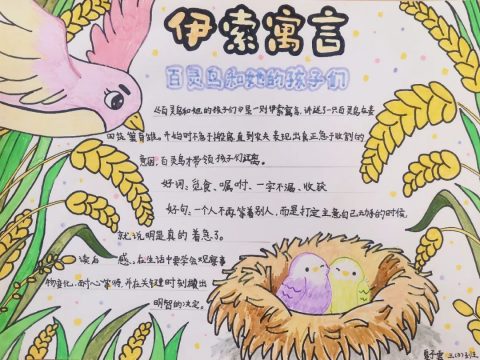 伊索寓言
百灵鸟和她的孩子们
《百灵鸟和她的孩子们》是一则伊索寓言,讲述了一只百灵鸟在麦
田筑巢育雏。开始时不急于搬离,直到农夫表现出真正急于收割的
意图,百灵鸟才带领孩子们迁离。
好词:觅食、嘱咐、一字不漏、收获
好句:一个人不再等着别人,而是打定主意自己动手的时候,
就说明是真的着急了。
读后感:在生活中要学会观察事
物变化,耐心等待,并在关键时刻做出
明智的决定。